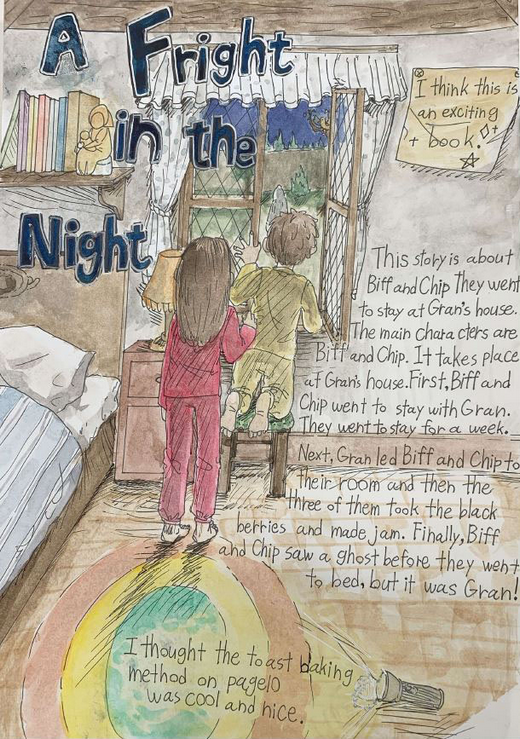 A Fright
in the
Night
I think this is
an exciting
book.
This story is about
Biff and Chip They went
to stay at Gran's house.
The main characters are
Biff and Chip. It takes place
at Gran's house. First, Biff and
Chip went to stay with Gran.
They went to stay for a week.
Next, Gran led Biff and Chip to
their room and then the
three of them took the black
berries and made jam. Finally, Biff
and Chip saw a ghost before they went
to bed, but it was Gran!
I thought the toast baking
method on page10
was cool and nice.